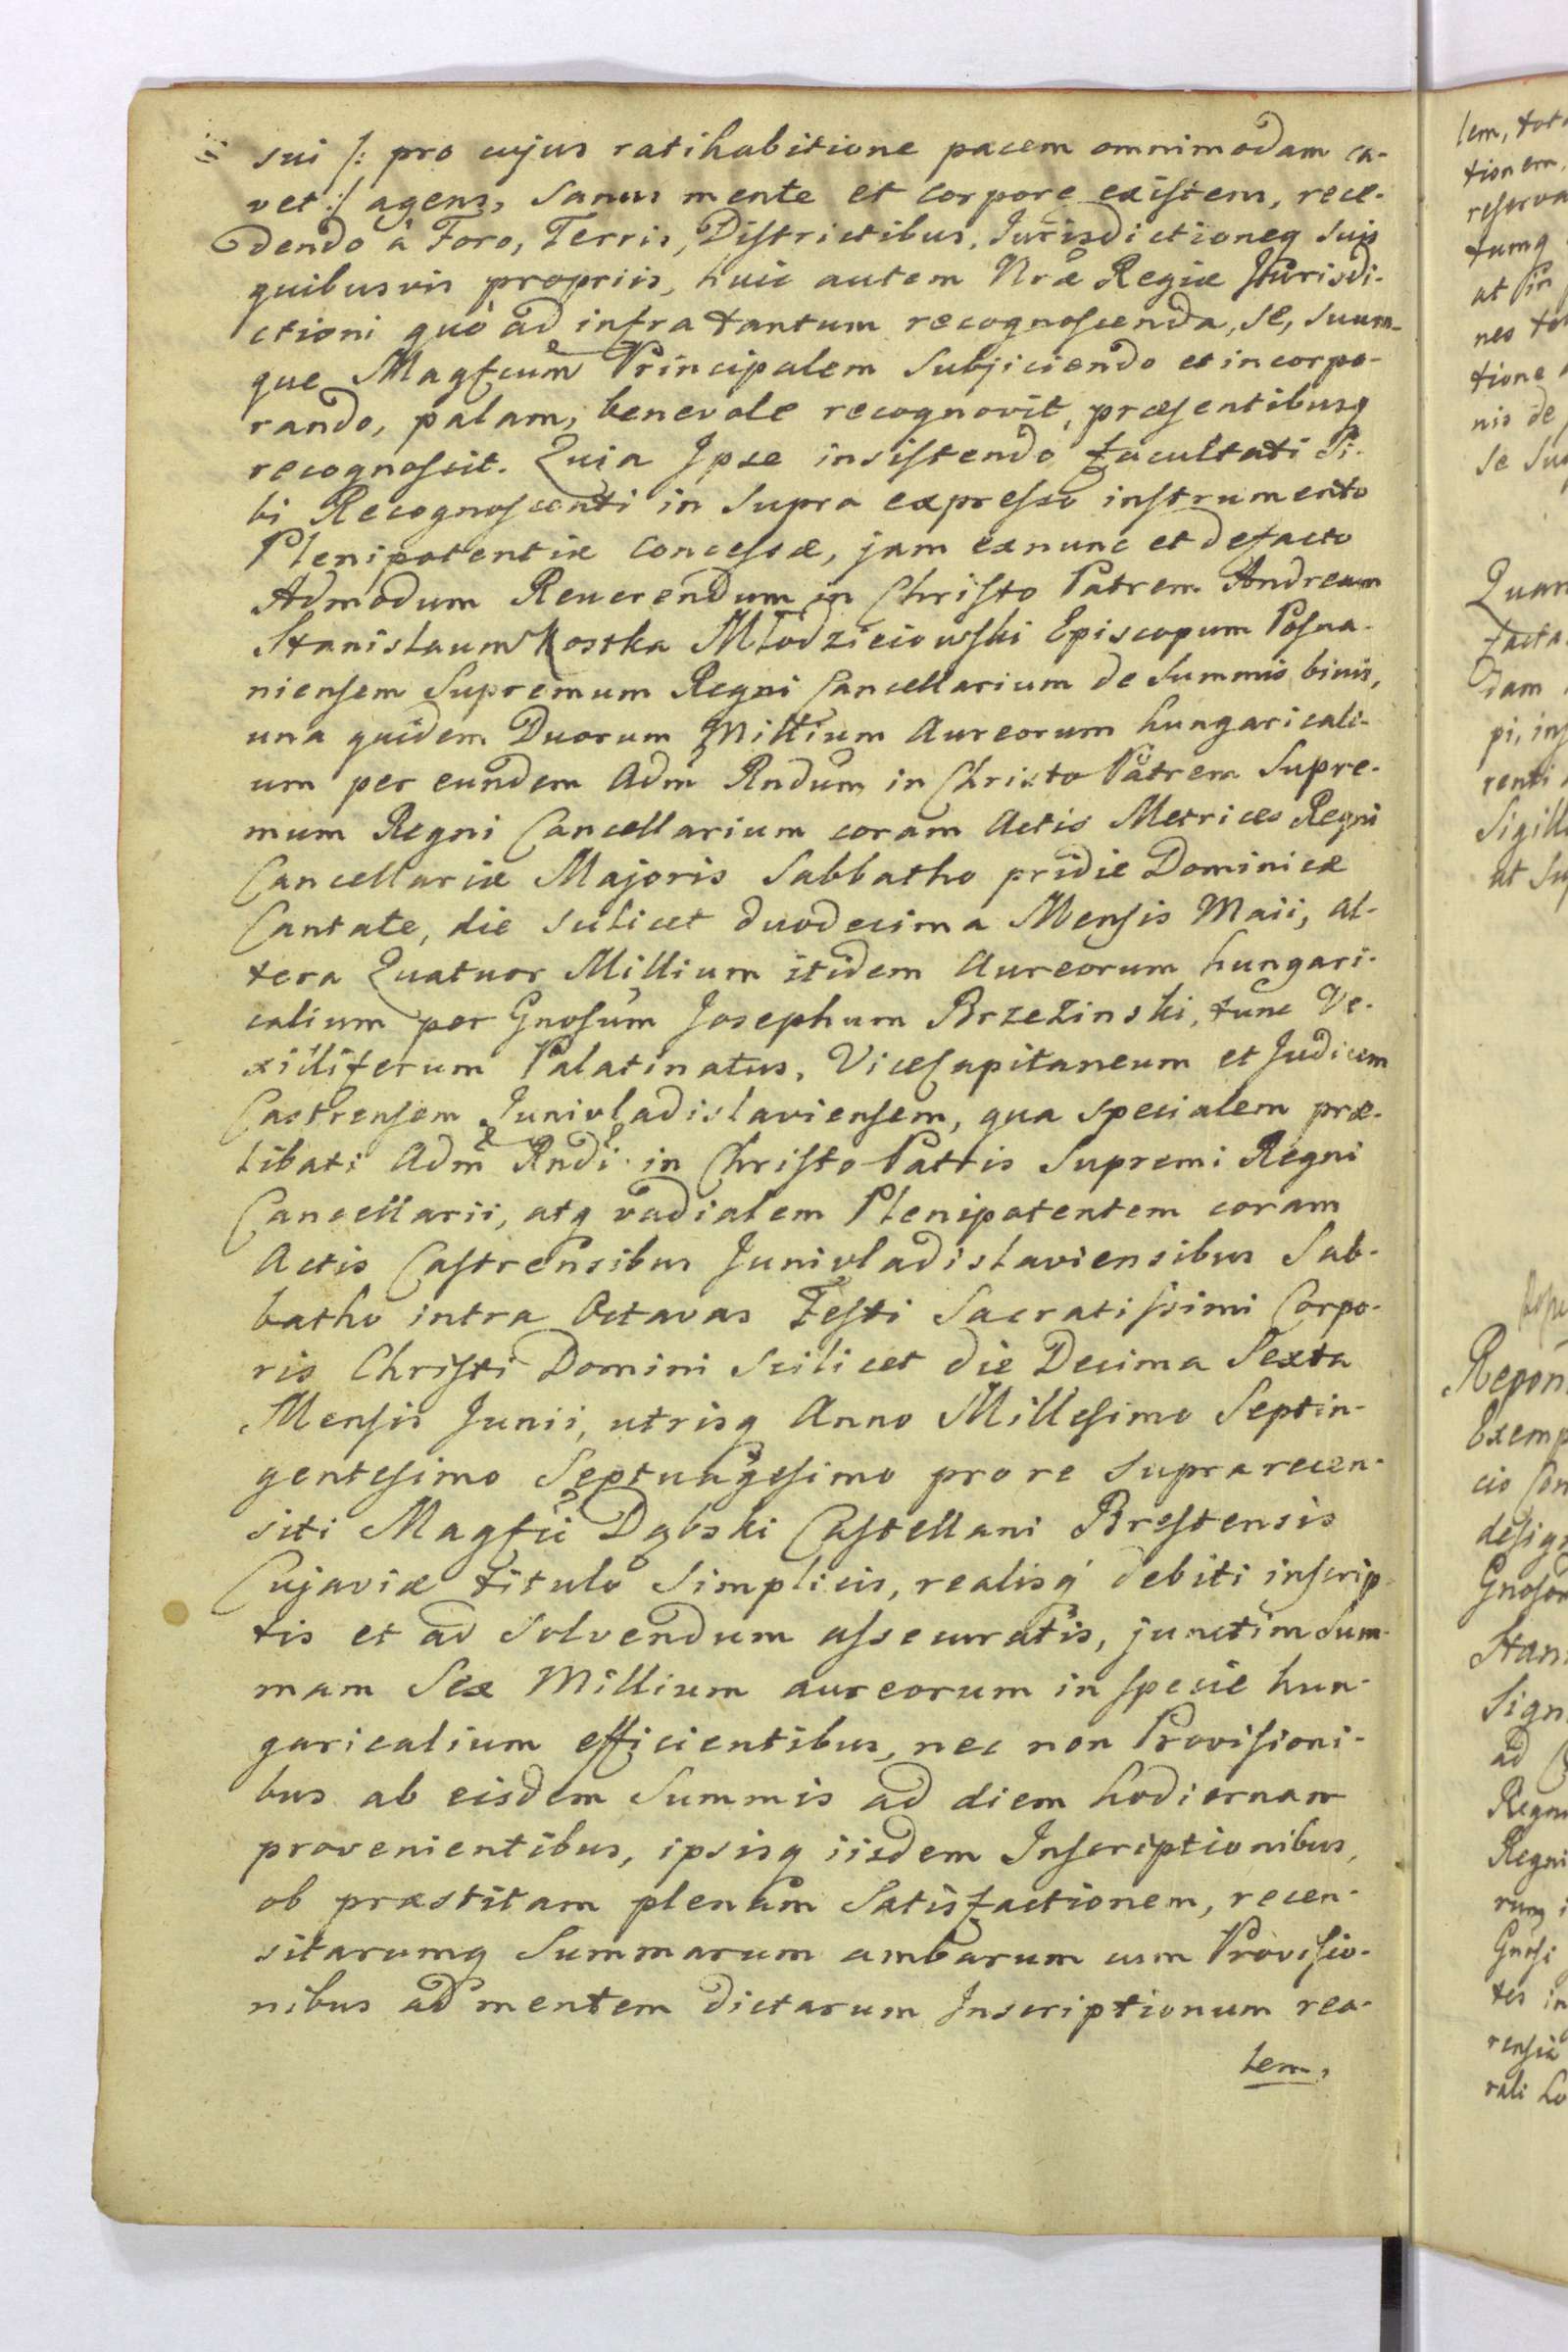 sui /: pro cujus ratihabitione pacem omnimodam ca-
vet :/ agens, sanus mente et corpore existens, rece-
dendo à Foro, Terris, Districtibus, Jurisdictioneq suis
quibusvis propriis, huic autem Nræ Regiæ Jurisdi-
ctioni quò ad infra tantum recognoscenda, se, suum-
que Magfcum Principalem subjiciendo et incorpo-
rando, palam, benevole recognovit, præsentibusq
recognoscit. Quia Ipse insistendo facultati Si-
bi Recognoscenti in supra expresso instrumento
Plenipotentiæ concessæ, jam exnunc et defacto
Admodum Reverendum in Christo Patrem Andream
Stanislaum Kostka Młodzieiowski Episcopum Posna-
niensem Supremum Regni Cancellarium de Summis binis,
una quidem Duorum Millium Aureorum hungaricali-
um per eundem Adm Rndum in Christo Patrem Supre-
mum Regni Cancellarium coram Actis Metrices Regni
Cancellariæ Majoris Sabbatho pridie Dominicæ
Cantate, die scilicet duodecima Mensis Maii, al-
tera Quatuor Millium itidem Aureorum hungari-
calium per Gnosum Josephum Brzezinski, tunc Ve-
xilliferum Palatinatus, ViceCapitaneum et Judicem
Castrensem Junivladislaviensem, qua specialem præ-
libati Adm Rndi in Christo Patris Supremi Regni
Cancellarii, atq vadialem Plenipotentem coram
Actis Castrensibus Junivladislaviensibus Sab-
batho intra Octavas Festi Sacratissimi Corpo-
ris Christi Domini scilicet die Decima Sexta
Mensis Junii, utrisq Anno Millesimo Septin-
gentesimo Septuagesimo pro re supra recen-
siti Magfci Dąbski Castellani Brestensis
Cujaviæ titulo simplicis, realisq debiti inscrip-
tis et ad solvendum assecuratis, junctim sum-
mam Sex Millium aureorum in specie hun-
garicalium efficientibus, nec non Provisioni-
bus ab eisdem Summis ad diem hodiernam
provenientibus, ipsisq iisdem Inscriptionibus,
ob præstitam plenam satisfactionem, recen-
sitarumq Summarum ambarum cum Provisio-
nibus ad mentem dictarum Inscriptionum rea-
lem,
lem, tot
tionem,
reserva
tumq
at in
neo
tione
nis de
se su
Quan
facta
dam
pi, ins
renti
Sigill
ut su
Repon
Exemp
cio Con
desig
Gnosor
Stan
Sign
ad
Regni
Regni
rumq
Gnosi
tes in
rensia
rali